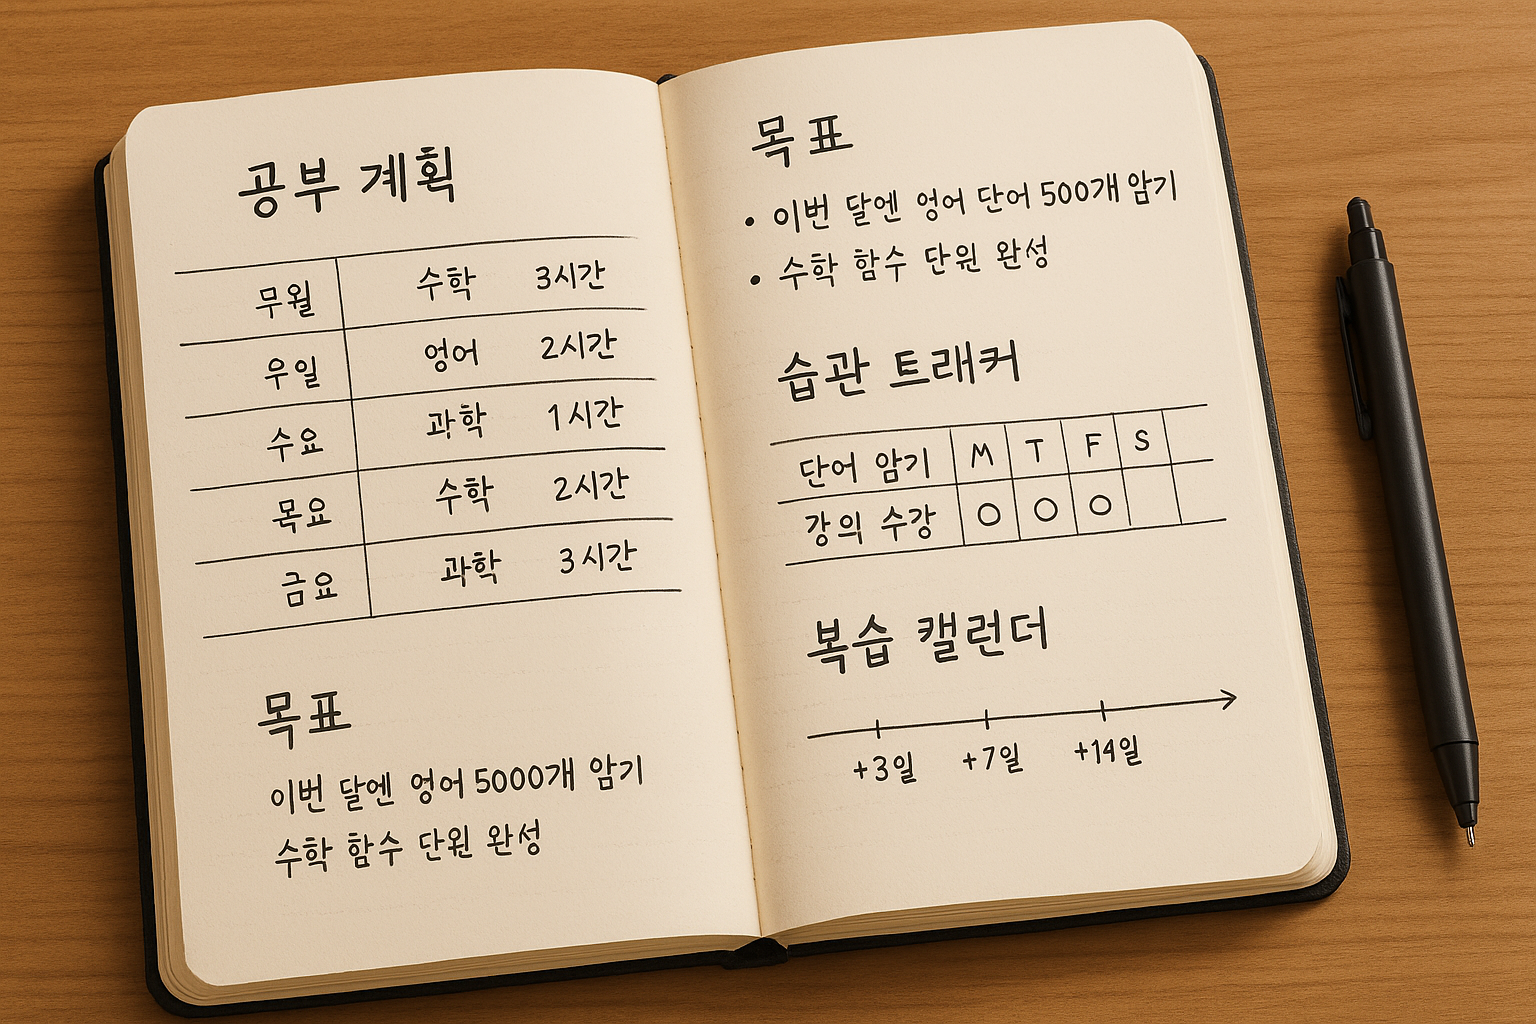 공부 계획
무월 수학 3시간
우일 영어 2시간
수요 과학 1시간
목요 수학 2시간
금요 과학 3시간
목표
이번 달엔 영어 5000개 암기
수학 함수 단원 완성
목표
• 이번 달엔 영어 단어 500개 암기
• 수학 함수 단원 완성
습관 트래커
단어 암기 M T F S
강의 수강 ○ ○ ○
복습 캘런더
+3일 +7일 +14일